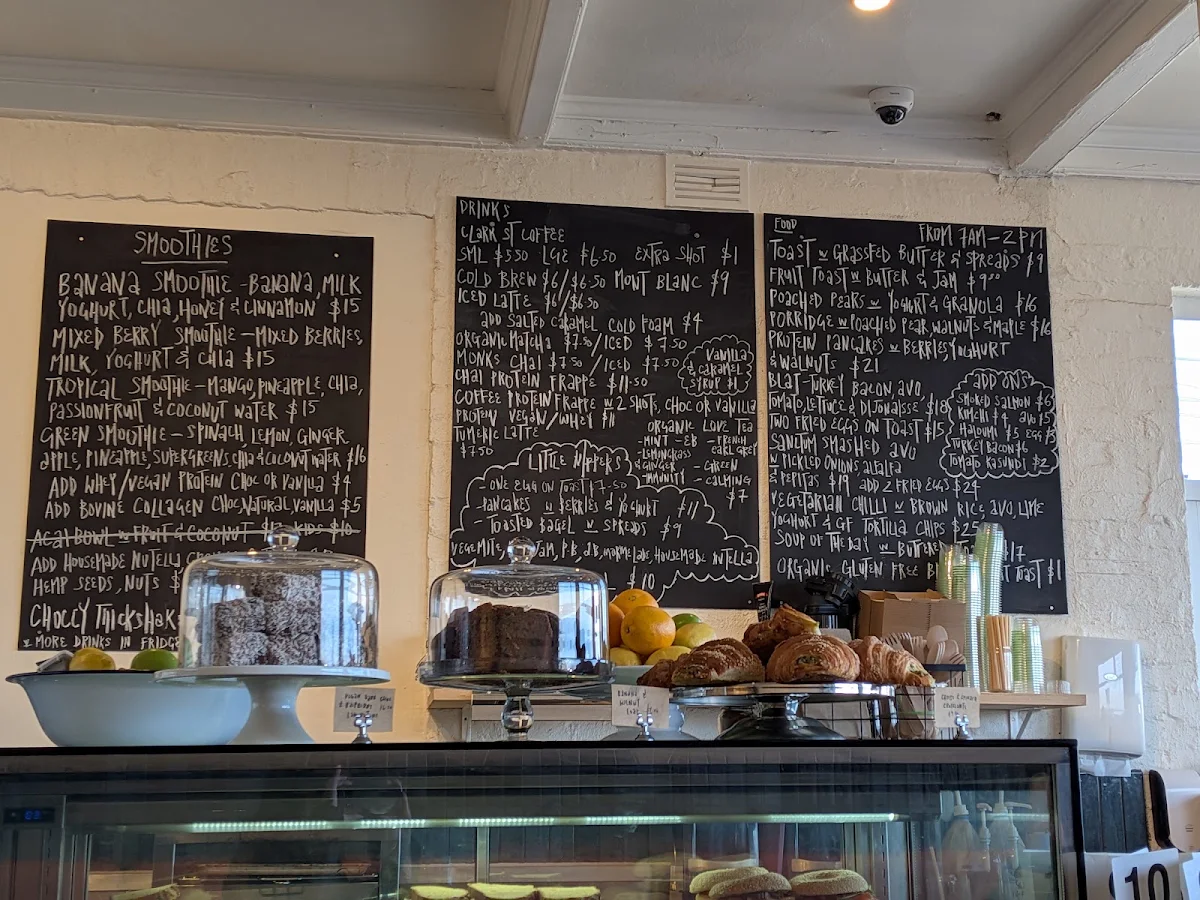 SMOOTHIES
BANANA SMOOTHIE - BANANA, MILK
YOGHURT, CHIA, HONEY & CINNAMON $15
MIXED BERRY SMOOTHIE - MIXED BERRIES,
MILK, YOGHURT & CHIA $15
TROPICAL SMOOTHIE - MANGO, PINEAPPLE, CHIA,
PASSIONFRUIT & COCONUT WATER $15
GREEN SMOOTHIE - SPINACH, LEMON, GINGER
APPLE, PINEAPPLE, SUPERGREENS CHIA & COCONUT WATER $16
ADD WHEY/VEGAN PROTEIN CHOC OR VANILLA $4
ADD BOVINE COLLAGEN CHOC, NATURAL, VANILLA $5
ACAI BOWL w FRUIT & COCONUT KIDS $10
ADD HOUSEMADE NUTELLA
HEMP SEEDS, NUTS $
CHOCCY THICKSHAK
& MORE DRINKS IN FRIDGE
DRINKS
CLARK ST COFFEE
SML $5.50 LGE $6.50 EXTRA SHOT $1
COLD BREW $6/$6.50 MONT BLANC $9
ICED LATTE $6/$6.50
ADD SALTED CARAMEL COLD FOAM $4
ORGANIC MATCHA $7.50/ICED $7.50
MONKS CHAI $7.50/ICED $7.50
CHAI PROTEIN FRAPPE $11.50
VANILLA
& CARAMEL
SYRUP $1
COFFEE PROTEIN FRAPPE w 2 SHOTS, CHOC OR VANILLA
PROTEIN VEGAN/WHEY $11
TUMERIC LATTE
$7.50
ORGANIC LOVE TEA
- MINT - EB - FRENCH
EARL GREY
- LEMONGRASS
& GINGER - GREEN
- IMMUNITY - CALMING
$7
LITTLE NIPPERS
- ONE EGG ON TOAST 7.50
- PANCAKES w BERRIES & YOGHURT $11
- TOASTED BAGEL w SPREADS $9
VEGEMITE, JAM, P.B, MARMELADE, HOUSEMADE NUTELLA
$10
FOOD
FROM 7AM - 2PM
TOAST w GRASSFED BUTTER & SPREADS $9
FRUIT TOAST w BUTTER & JAM $9.50
POACHED PEARS w YOGHURT & GRANOLA $16
PORRIDGE w POACHED PEAR, WALNUTS & MAPLE $16
PROTEIN PANCAKES w BERRIES, YOGHURT
& WALNUTS $21
BLAT - TURKEY BACON, AVO,
TOMATO, LETTUCE & DIJONAISSE $18
TWO FRIED EGGS ON TOAST $15
SANCTUM SMASHED AVO
w PICKLED ONIONS ALFALFA
& PEPITAS $19 ADD 2 FRIED EGGS $24
ADD ONS
SMOKED SALMON $6
KIMCHI $4 AVO $5
HALOUMI $5 EGG $3
TURKEY BACON $6
TOMATO KASUNDI $2
VEGETARIAN CHILLI w BROWN RICE AVO, LIME
YOGHURT & GF TORTILLA CHIPS $25
SOUP OF THE DAY w BUTTERE $17
ORGANIC GLUTEN FREE B TOAST $1
10